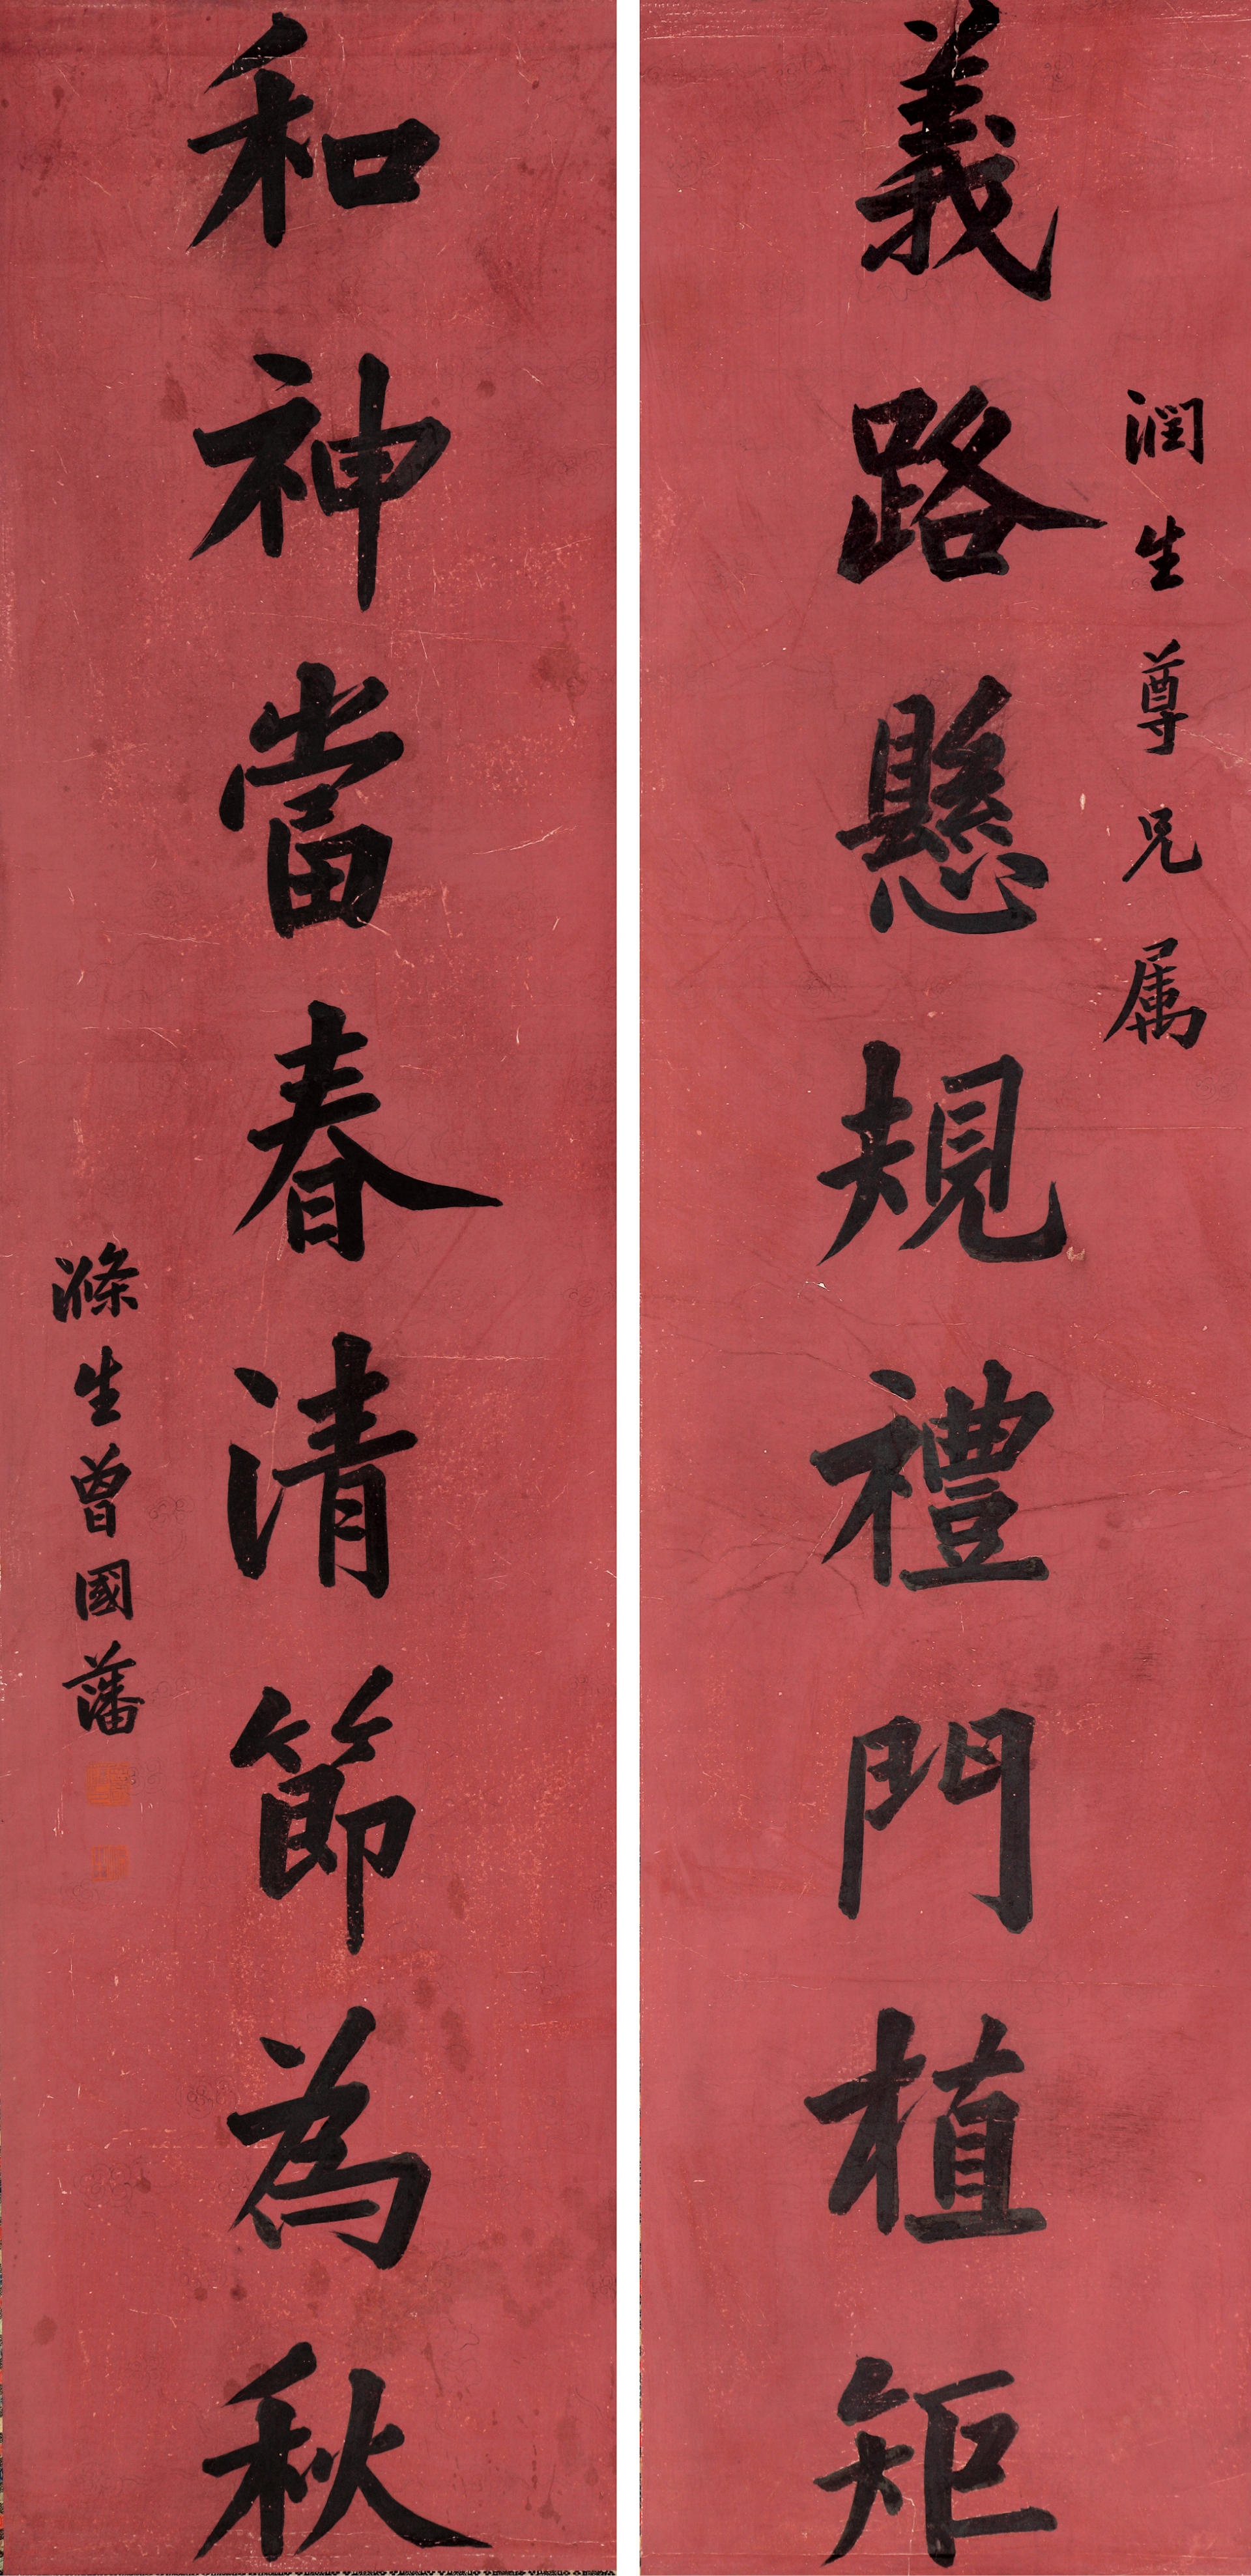 潤生尊兄属
義路懸規禮門植矩
和神當春清節為秋
滌生曾國藩